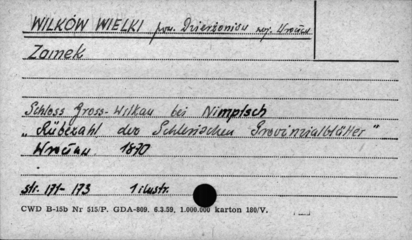 WILKÓW WIELKI pow. Dzierżoniów woj. Wrocław
Zamek
Schloss Gross-Wilkau bei Nimptsch
„Rübezahl der Schlesischen Provinzialblätter"
Wrocław 1870
str. 171-173 1 ilustr.
CWD B-15b Nr 515/P. GDA-809. 6.3.59, 1.000.000 karton 180/V.